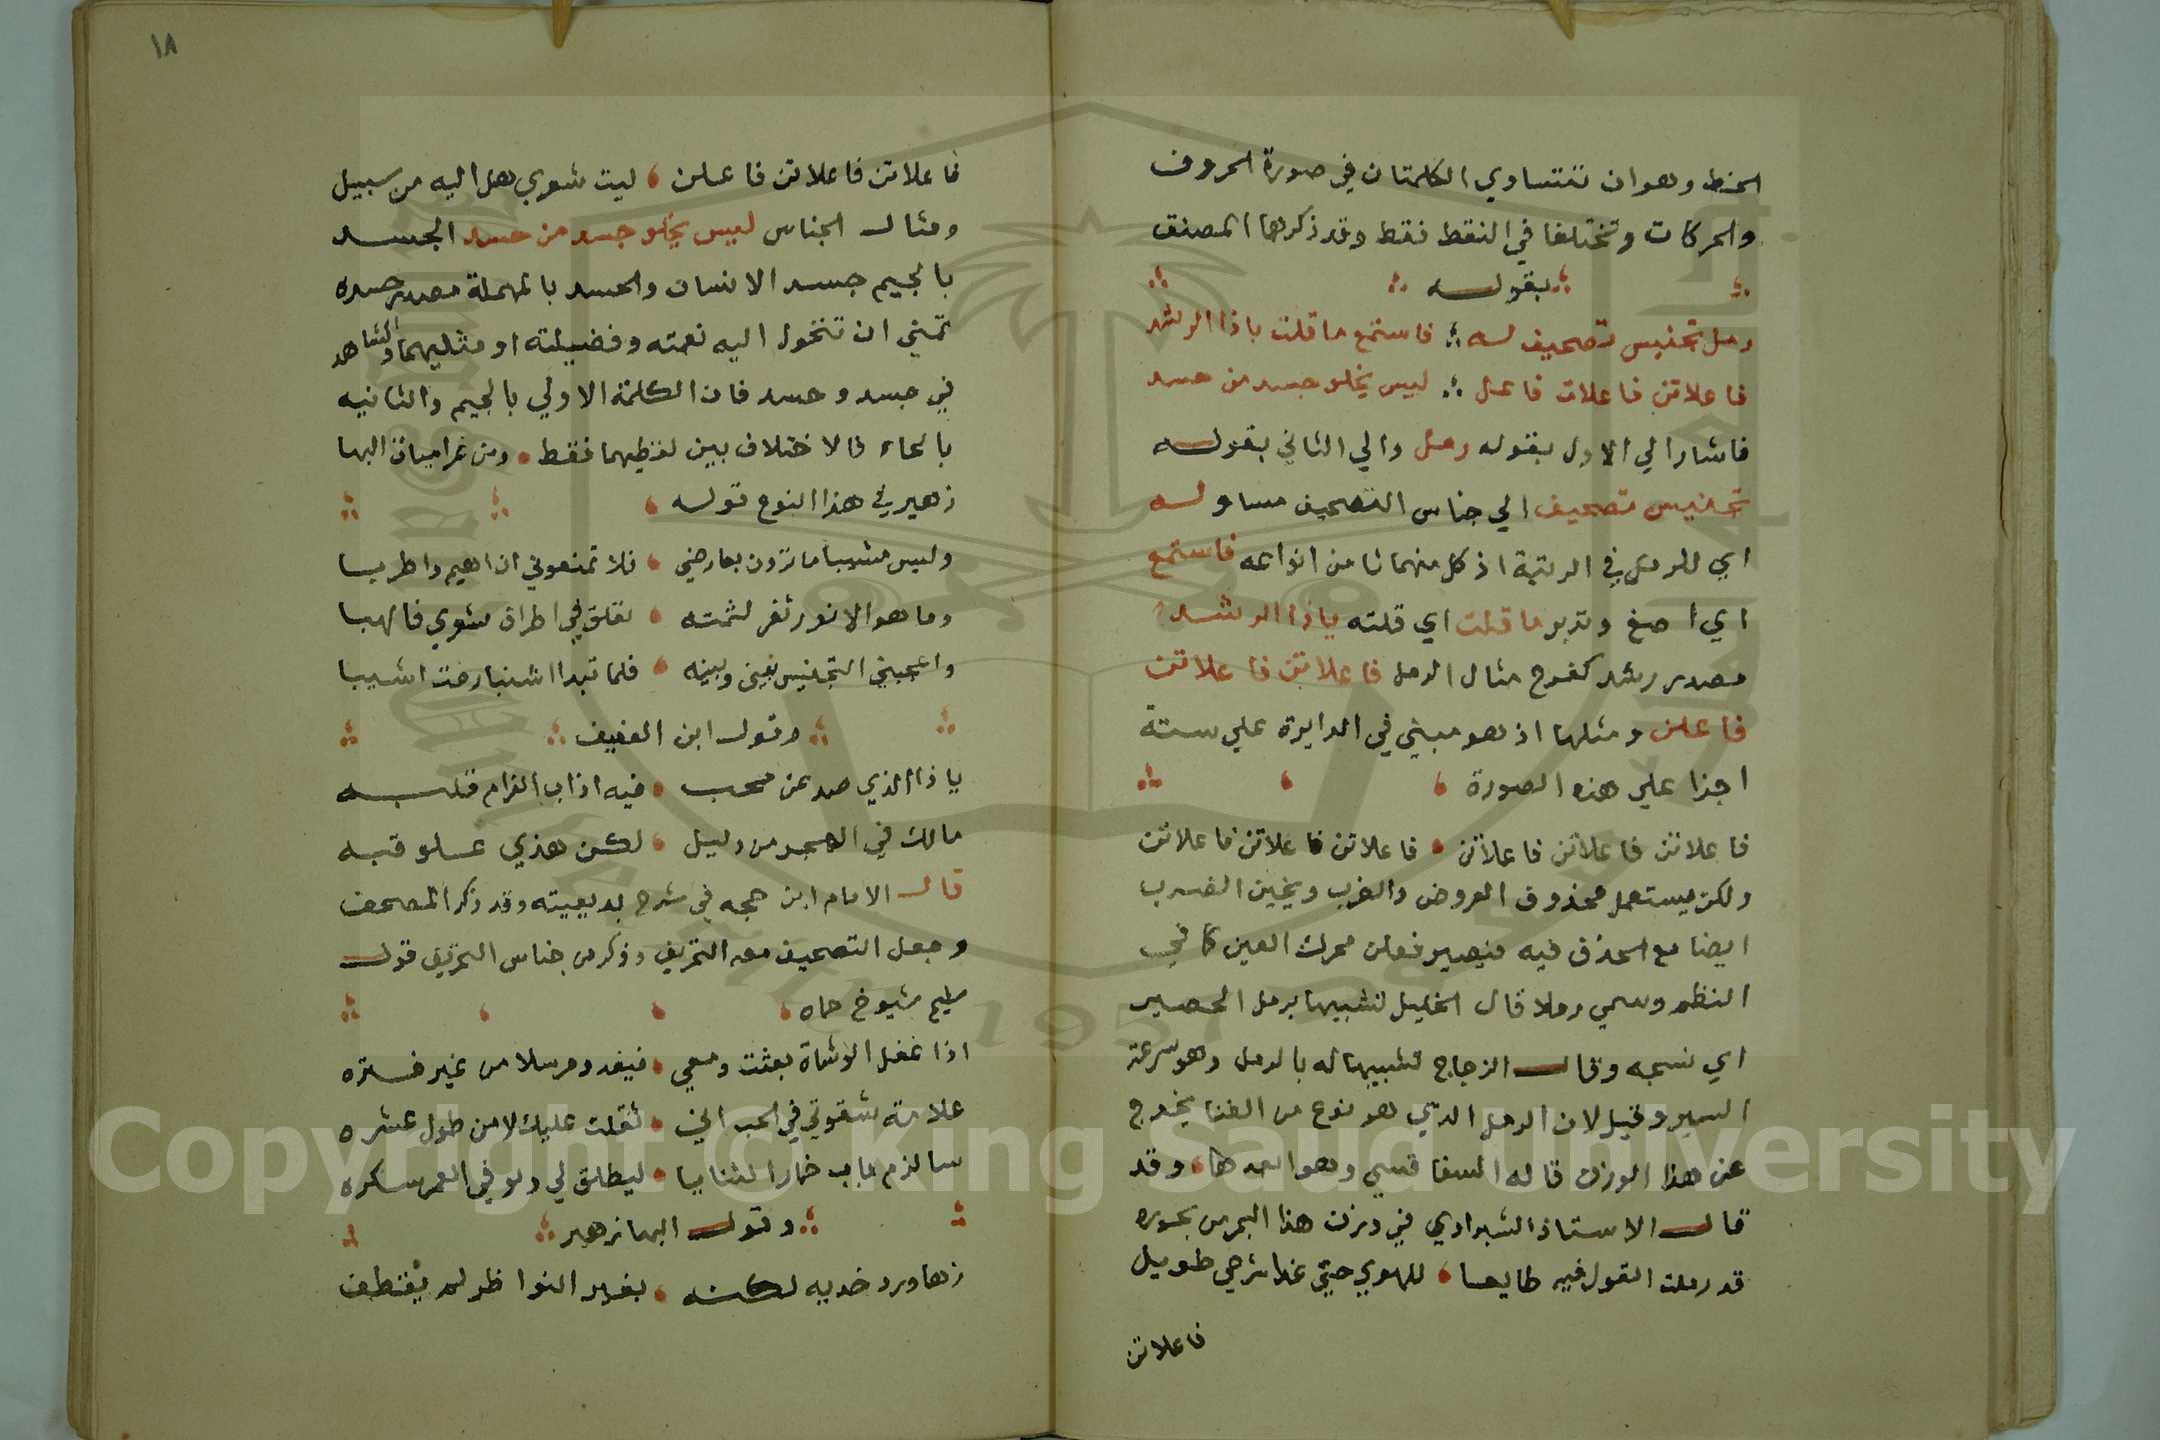 الخط وهو ان تتساوي الكلمتان في صورة الحروف
والحركات وتختلفا في النقط فقط وقد ذكرها المصنف
بقوله
رمل تجنيس تصحيف له فاستمع ما قلت ياذا الرشد
فاعلاتن فاعلات فاعل ليس يخلو جسد من حسد
فاشار الي الاول بقوله رمل والي الثاني بقوله
تجنيس تصحيف الي جناس التصحيف مساو له
اي للرمل في الرتبة اذ كل منهما من انواعه فاستمع
اي اصغ وتدبر ما قلت اي قلته ياذا الرشد
مصدر رشد كفرح مثال الرمل فاعلاتن فاعلاتن
فاعلن ومثلها اذ هو مبني في الدايرة علي ستة
اجزا علي هذه الصورة
فاعلاتن فاعلاتن فاعلاتن فاعلاتن فاعلاتن فاعلاتن
ولكن يستعمل محذوف العروض والضرب ويخبن الضرب
ايضا مع الحذف فيه فيصير فعلن محرك العين كما في
النظم وسمي رملا قال الخليل لتشبيها برمل الحصير
اي نسجه وقال الزجاج تشبيها له بالرمل وهو سرعة
السير وقيل لان الرمل الذي هو نوع من الغنا يخرج
عن هذا الوزن قاله السفاقسي وهو ابعدها وقد
قال الاستاذ الشبراوي في وزن هذا البحر من بحوره
قد رملت القول فيه طايعا للهوي حتي غدا شرحي طويل
فاعلاتن
١٨
فاعلاتن فاعلاتن فاعلن ليت شعري هل اليه من سبيل
ومثال الجناس ليس يخلو جسد من حسد الجسد
بالجيم جسد الانسان والحسد بالمهملة مصدر حسده
تمني ان تتحول اليه نعمته وفضيلته او مثليهما والشاهد
في جسد وحسد فان الكلمة الاولي بالجيم والثانيه
بالحاء فالاختلاف بين لفظيهما فقط ومن غراميات البها
زهير في هذا النوع قوله
وليس مشيبا ما ترون بعارضي فلا تمنعوني ان اهيم واطربا
وما هو الا نور ثغر لثمته تعلق في اطراف شعري فالهبا
واعجبني التجنيس بيني وبينه فلما تبدا اشنبا رحت اشيبا
وقول ابن العفيف
ياذا الذي صد عن محب فيه اذاب الغرام قلبه
مالك في الهجر من دليل لكن هذي علو قبه
قال الامام ابن حجه في شرح بديعيته وقد ذكر المصحف
وجعل التصحيف معه التحريف وذكر من جناس التحريف قول
شيوخ حماه
اذا غفل الوشاة بعثت دمعي فيغدو مرسلا من غير فتره
علامة شقوتي في الحب اني ثقلت عليك لا من طول عشره
سالزم باب خمار الثنايا ليطلق لي ولو في العمر سكره
وقول البها زهير
زها ورد خديه لكنه بغير النواظر لم يقتطف